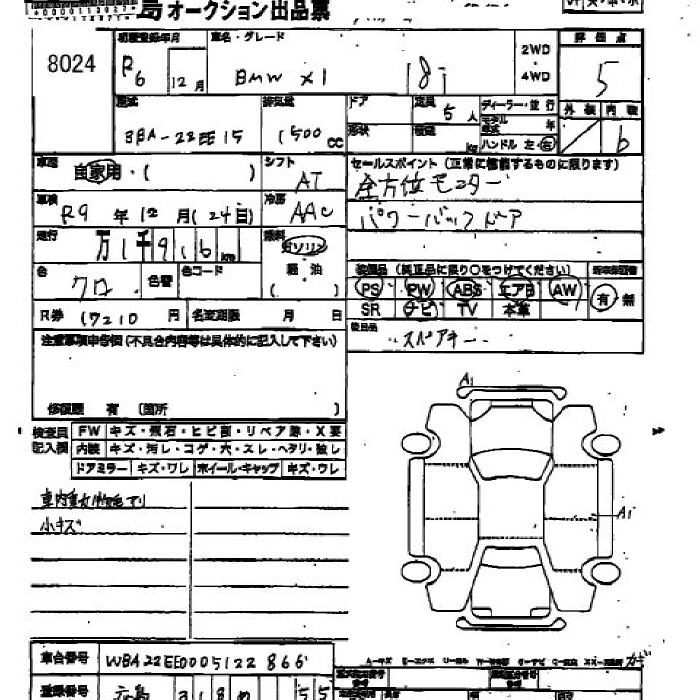 オークション出品票
8024
初度登録年月
R6 12月
車名・グレード
BMW X1 18i
2WD
・
4WD
評価点
5
型式
3BA-22EE15
排気量
1500cc
ドア
形状
定員 5人
ディーラー・並行
モデル年式 年
ハンドル 左・右
外装 内装
b
車歴
自家用・( )
シフト
AT
セールスポイント (正常に機能するものに限ります)
全方位モニター
パワーバックドア
車検
R9年12月(24日)
冷房
AAC
走行
万1千916km
燃料
ガソリン
軽油
( )
色
クロ
色替
色コード
装備品 (純正品に限り○をつけてください)
PS PW ABS エアB AW
SR ナビ TV 本革
有・無
R券 17210円
名変期限 月 日
後日品
スペアキー
注意事項申告欄 (不具合内容等は具体的に記入して下さい)
修復歴 有 (箇所 )
検査員記入欄
FW キズ・飛石・ヒビ割・リペア跡・X要
内装 キズ・汚レ・コゲ・穴・スレ・ヘタリ・欠し
ドアミラー キズ・ワレ ホイール・キャップ キズ・ワレ
小キズ
A1
A1
車台番号 WBA22EE0005122866
登録番号 広島 318
55